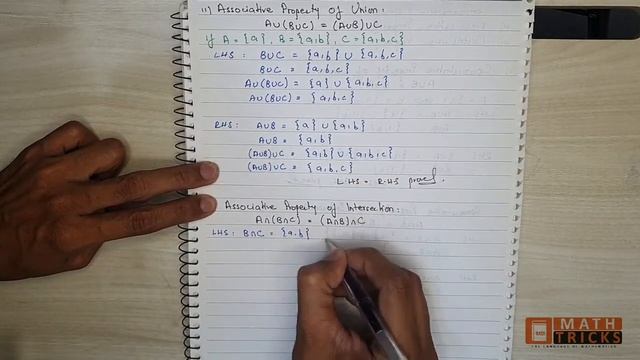 iii) Associative Property of Union:
A∪(B∪C) = (A∪B)∪C
if A = {a}, B = {a,b}, C = {a,b,c}
LHS: B∪C = {a,b} ∪ {a,b,c}
B∪C = {a,b,c}
A∪(B∪C) = {a} ∪ {a,b,c}
A∪(B∪C) = {a,b,c}
RHS: A∪B = {a} ∪ {a,b}
A∪B = {a,b}
(A∪B)∪C = {a,b} ∪ {a,b,c}
(A∪B)∪C = {a,b,c}
L.HS = R.HS proved.
Associative Property of Intersection:
A∩(B∩C) = (A∩B)∩C
LHS: B∩C = {a,b}
MATH
TRICKS
THE LANGUAGE OF MATHEMATICS